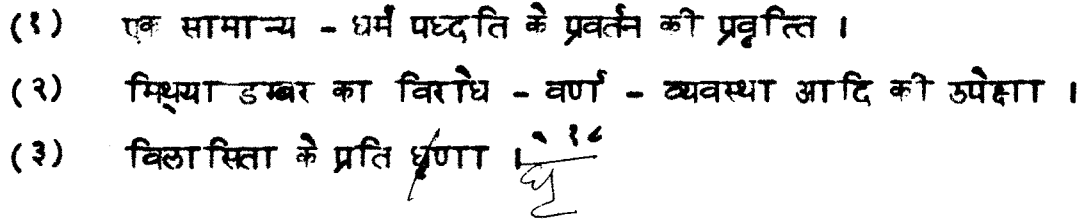 (१) एक सामान्य - धर्म पध्दति के प्रवर्तन की प्रवृत्ति ।
(२) मिथ्या डम्बर का विरोध - वर्ण - व्यवस्था आदि की उपेक्षा ।
(३) विलासिता के प्रति घृणा । १८
घृ